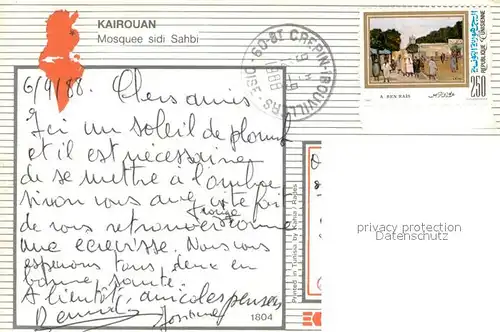 KAIROUAN
Mosquee sidi Sahbi
60-ST CREPIN-IBOUVILLERS-
1988
REPUBLIQUE TUNISIENNE
250
A. BEN RAIS
6/9/88. Chers amis
Ici un soleil de plomb
et il est nécessaire
de se mettre à l'ombre
sinon vous avez vite fait
rouge
de vous retrouver comme
une écrevisse. Nous vous
espérons tous deux en
bonne santé.
A bientôt, amicales pensées
Josiane
1804
Printed in Tunisia by Kahia
privacy protection
Datenschutz